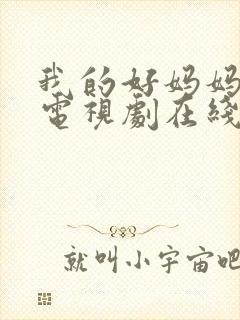 我的好妈妈
電視劇在綫
就叫小宇宙吧